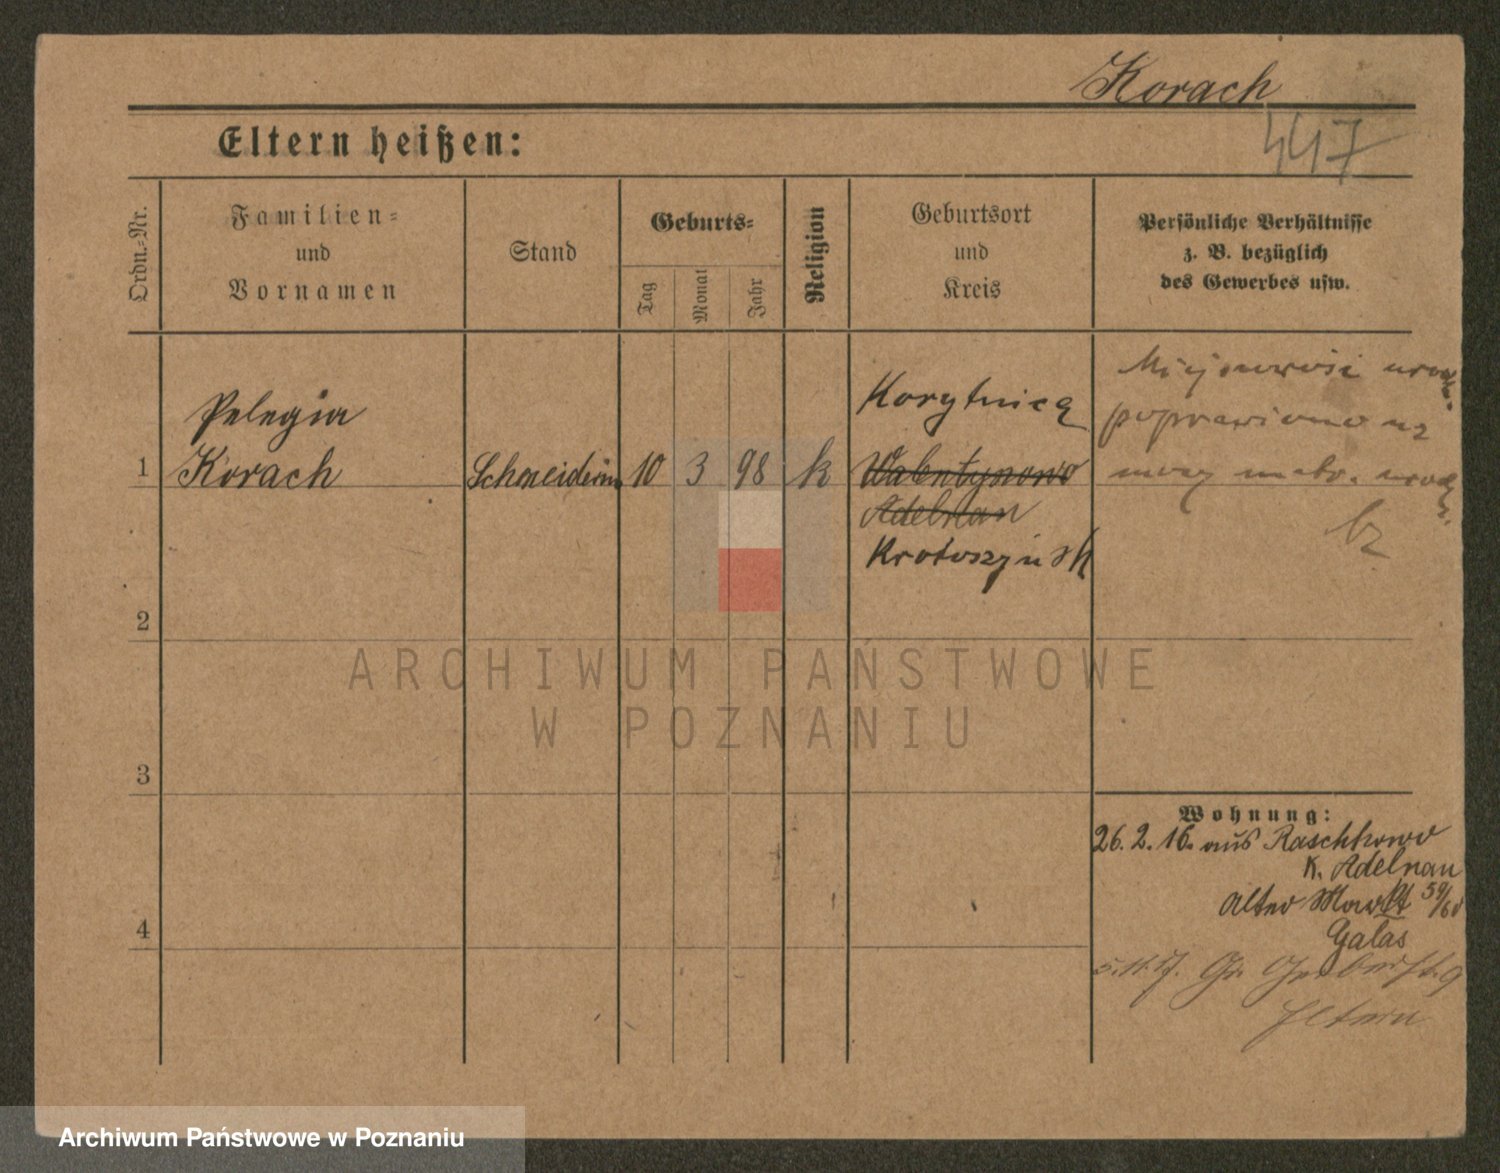 Korach
447
Eltern heißen:
Ordn.-Nr.
Familien-
und
Vornamen
Stand
Geburts-
Tag
Monat
Jahr
Religion
Geburtsort
und
Kreis
Persönliche Verhältnisse
z. B. bezüglich
des Gewerbes usw.
1
Pelegia
Korach
Schneiderin
10
3
98
k
Korytnica
Walentynowo
Adelnau
Krotoszyńsk
Miejscowość urodz.
poprawiono na
mocy metr. urodz.
bz
2
3
4
Wohnung:
26. 2. 16. aus Raschkowo
K. Adelnau
Alter Markt 59/60
Galas
5.11.17. Gr. Gerberst. 9
Eltern
ARCHIWUM PAŃSTWOWE
W POZNANIU
Archiwum Państwowe w Poznaniu